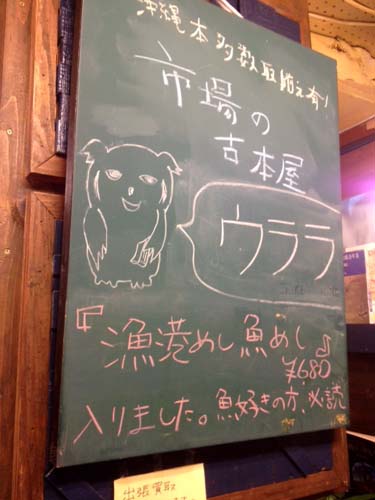 沖縄本多数取揃え有り
市場の
古本屋
ウララ
『漁港めし魚めし』
¥680
入りました。魚好きの方、必読
出張買取